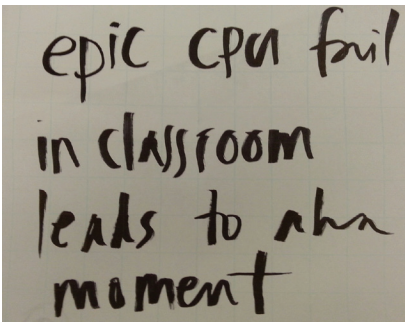 epic cpu fail
in classroom
leads to aha
moment